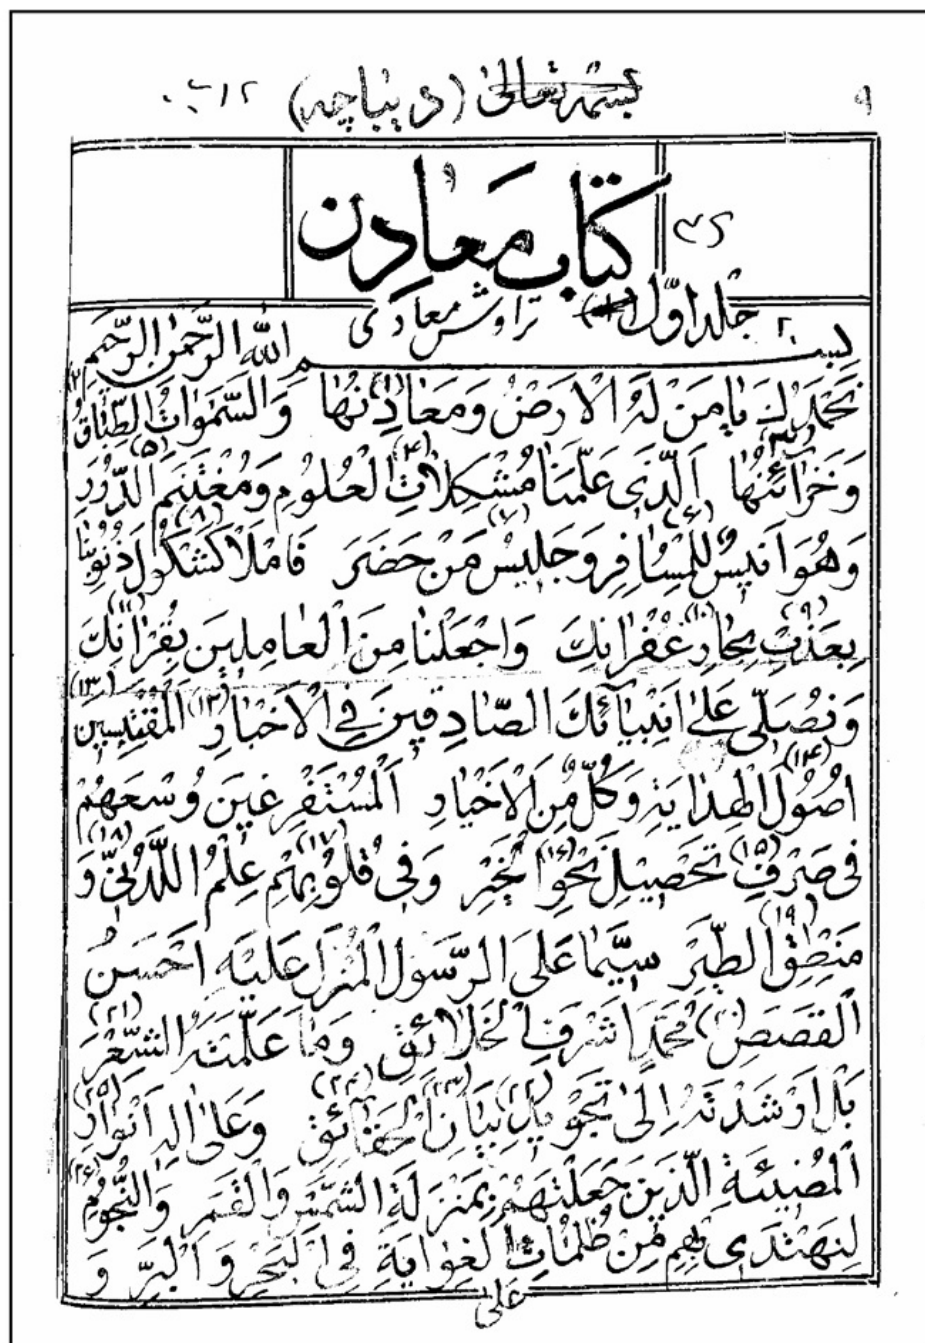 ۹ بسمه تعالیٰ (دیباچه)
کتاب معادن
جلد اوّل (۱) تراوش معادی
بِسْمِ اللّٰهِ الرَّحْمٰنِ الرَّحٖيمِ (۲)
نَحْمَدُكَ يٰا مَنْ لَهُ الْاَرَضُ وَمَعٰادِنُهٰا وَالسَّمٰوٰاتُ الطِّبٰاقُ
وَخَزٰائِنُهٰا اَلَّذٖى عَلَّمَنٰا مُشْكِلاٰتِ (۴) الْعُلُومِ وَمُغْتَنَمِ (۵) الدُّرَرِ
وَهُوَ اَنٖيسٌ لِلْمُسٰافِرِ (۶) وَجَلٖيسُ (۷) مَنْ حَضَرَ فَامْلَأْ كَشْكُولَ (۸) ذُنُوبِنٰا
بِعَذْبِ (۹) بِحٰارِ (۱۰) غُفْرٰانِكَ وَاجْعَلْنٰا مِنَ الْعٰامِلٖينَ (۱۱) بِقُرْاٰنِكَ
وَنُصَلّٖى عَلىٰ اَنْبِيٰآئِكَ الصّٰادِقٖينَ فِى الْاَخْبٰارِ (۱۲) الْمُقْتَبِسٖينَ (۱۳)
اُصُولَ الْهِدٰايَةِ (۱۴) وَكُلٌّ مِنَ الْاَخْيٰارِ اَلْمُسْتَفْرِغٖينَ وُسْعَهُمْ
فٖى صَرْفِ (۱۵) تَحْصٖيلِ نَحْوِ (۱۶) الْخَيْرِ وَفٖى قُلُوبِهِمْ (۱۷) عِلْمُ اللَّدُنِّىِّ (۱۸) وَ
مَنْطِقِ (۱۹) الطَّيْرِ سِيَّمٰا عَلَى الرَّسُولِ الْمُنْزَلِ عَلَيْهِ اَحْسَنُ
الْقَصَصِ مُحَمَّدٍ اَشْرَفِ الْخَلاٰئِقِ وَمٰا عَلَّمْتَهُ الشِّعْرَ (۲۱)
بَلْ اَرْشَدْتَهُ اِلىٰ تَجْوٖيدِ (۲۲) بَيٰانِ (۲۳) الْحَقٰائِقِ (۲۴) وَعَلىٰ اٰلِهِ اَنْوٰارِ (۲۵)
الْمُضٖيئَةِ الَّذٖينَ جَعَلْتَهُمْ بِمَنْزِلَةِ الشَّمْسِ وَالْقَمَرِ وَالنُّجُومِ (۲۶)
لِنَهْتَدٖى بِهِمْ مِنْ ظُلُمٰاتِ الْغِوٰايَةِ فِى الْبَحْرِ وَالْبَرِّ وَ
عَلىٰ